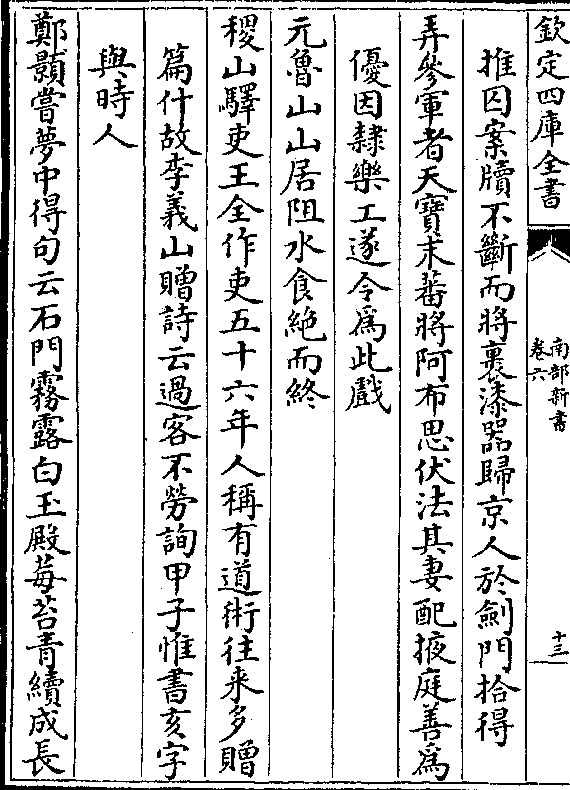 欽定四庫全書
南部新書
卷六
十三
推囚案牘不斷而將裹漆器歸京人於劍門拾得
弄參軍者天寶末蕃將阿布思伏法其妻配掖庭善為
優因隸樂工遂令為此戲
元魯山山居阻水食絶而終
稷山驛吏王全作吏五十六年人稱有道術往来多贈
篇什故李義山贈詩云過客不勞詢甲子惟書亥字
與時人
鄭顥嘗夢中得句云石門霧露白玉殿莓苔青續成長